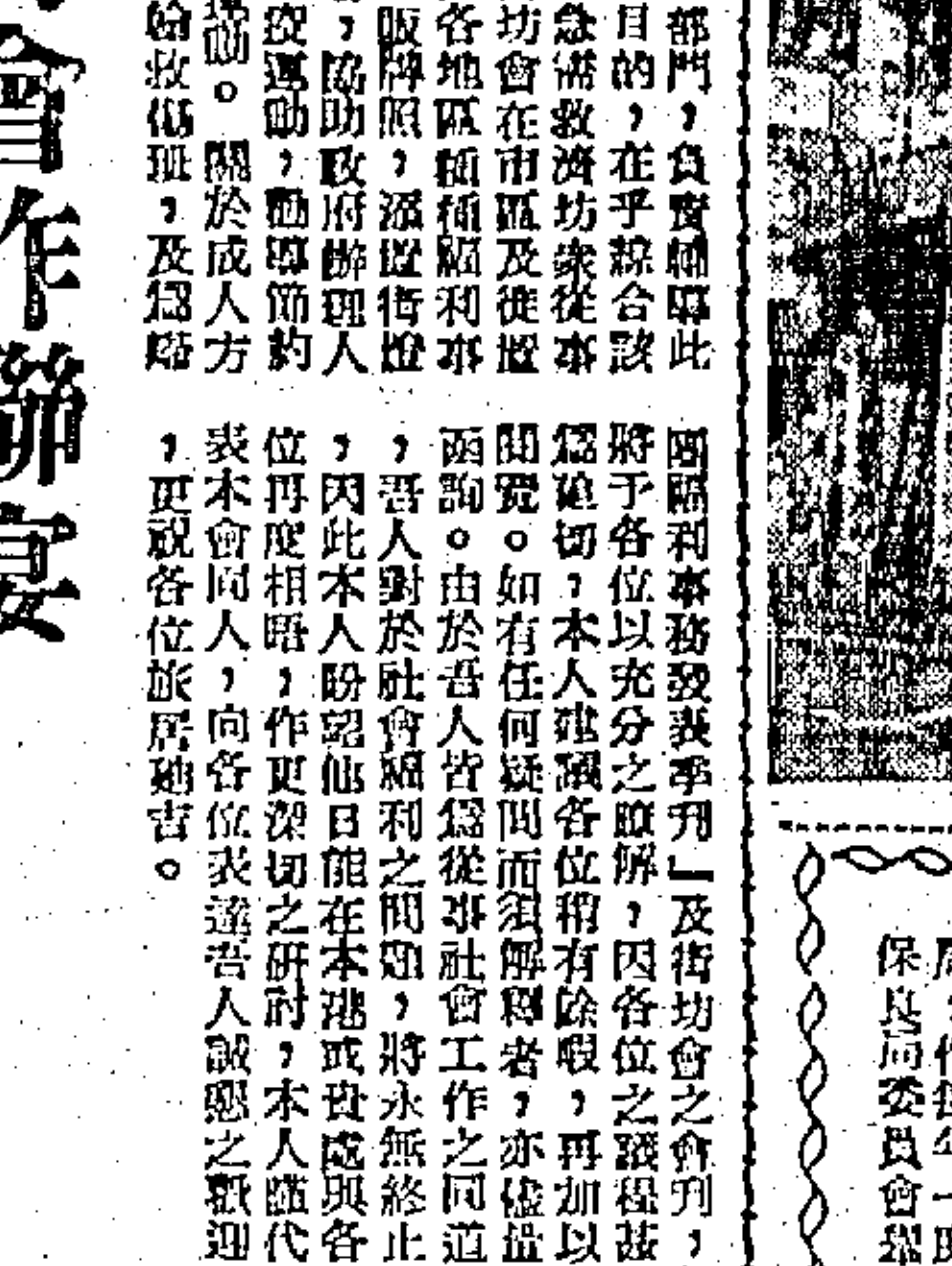 部門,負責輔導此
目的,在乎綜合該
急需救濟坊衆從事
坊會在市區及徙置
各地區種種福利事
販牌照,添置街燈
,協助政府辦理人
疫運動,勸導節約
。關於成人方
救傷班,及爲
團福利事務發表季刊」及街坊會之會刊,
將予各位以充分之瞭解,因各位之議程甚
爲迫切,本人建議各位稍有餘暇,再加以
閱覽。如有任何疑問而須解釋者,亦儘量
函詢。由於吾人皆爲從事社會工作之同道
,吾人對於社會福利之問題,將永無終止
,因此本人盼望他日能在本港或貴處與各
位再度相晤,作更深切之研討,本人謹代
表本會同人,向各位表達吾人誠懇之歡迎
,更祝各位旅居迪吉。
會作聯宴
保良局委員會